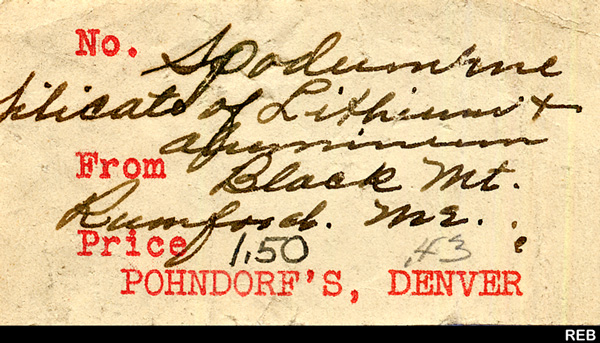 No. Spodumene
Silicate of Lithium +
aluminum
From Black Mt.
Rumford. Me.
Price 1.50 .43
POHNDORF'S, DENVER
REB